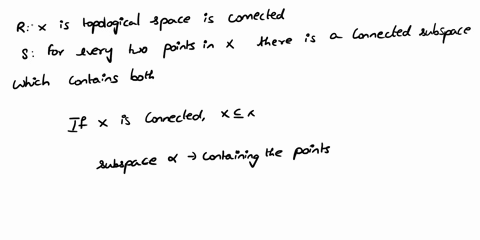 R: x is topological space is connected
S: for every two points in x there is a connected subspace
which contains both
If x is connected, x ⊆ x
subspace x → containing the points